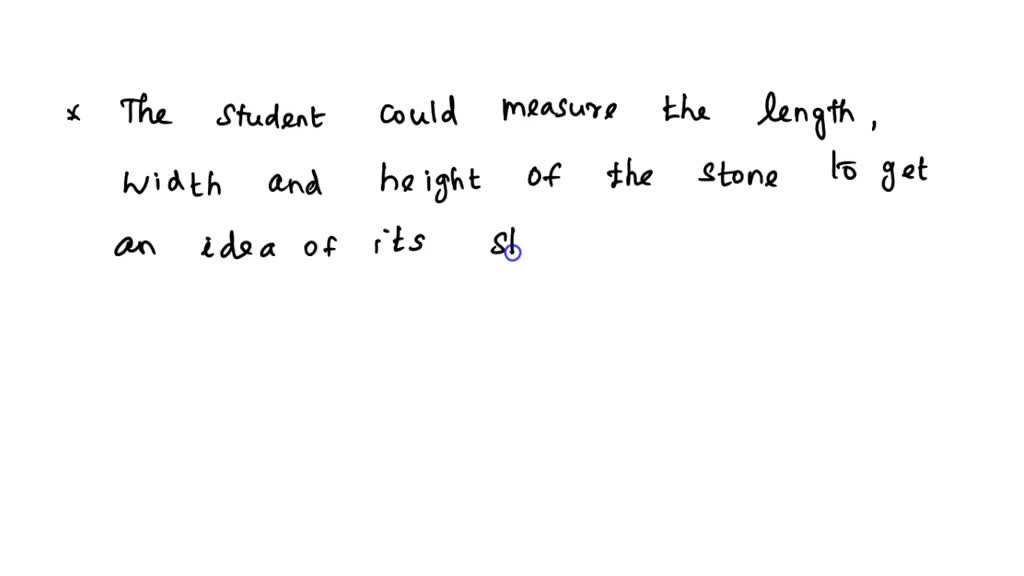 x The student could measure the length,
width and height of the stone to get
an idea of its